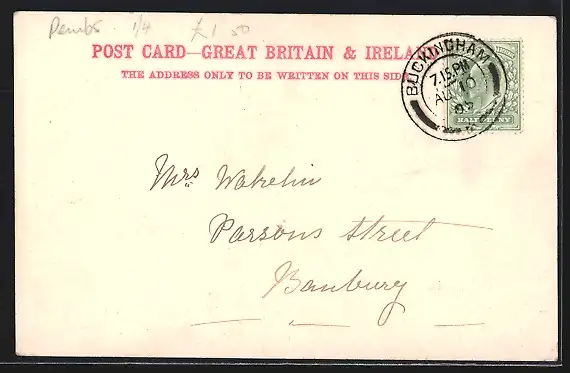 Pembs 1/4 £1.50
POST CARD—GREAT BRITAIN & IRELAND
THE ADDRESS ONLY TO BE WRITTEN ON THIS SIDE
BUCKINGHAM
7.15 PM
AU 10
HALFPENNY
Mrs Wakelin
Parsons Street
Banbury